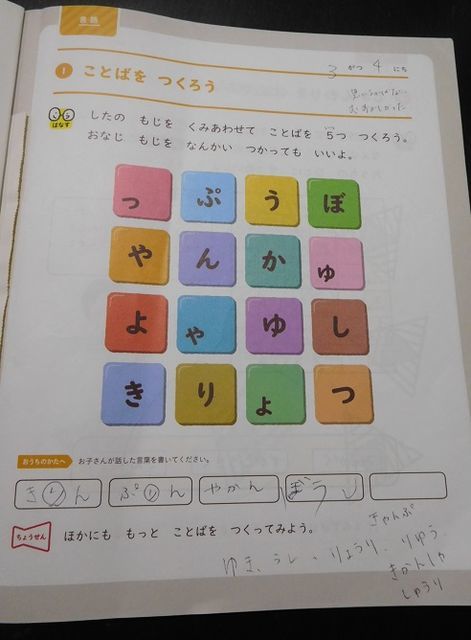 言語
3 がつ 4 にち
1 ことばを つくろう
おもしろかった
はなす
したの もじを くみあわせて ことばを 5つ つくろう。
おなじ もじを なんかい つかっても いいよ。
っ ぷ う ぼ
や ん か ゅ
よ ゃ ゆ し
き り ょ つ
おうちのかたへ お子さんが話した言葉を書いてください。
きりん ぷりん やかん ぼうし
ちょうせん ほかにも もっと ことばを つくってみよう。
きゃんぷ
ゆき、うし、りょうり、りゆう
きかんしゃ
しゅうり